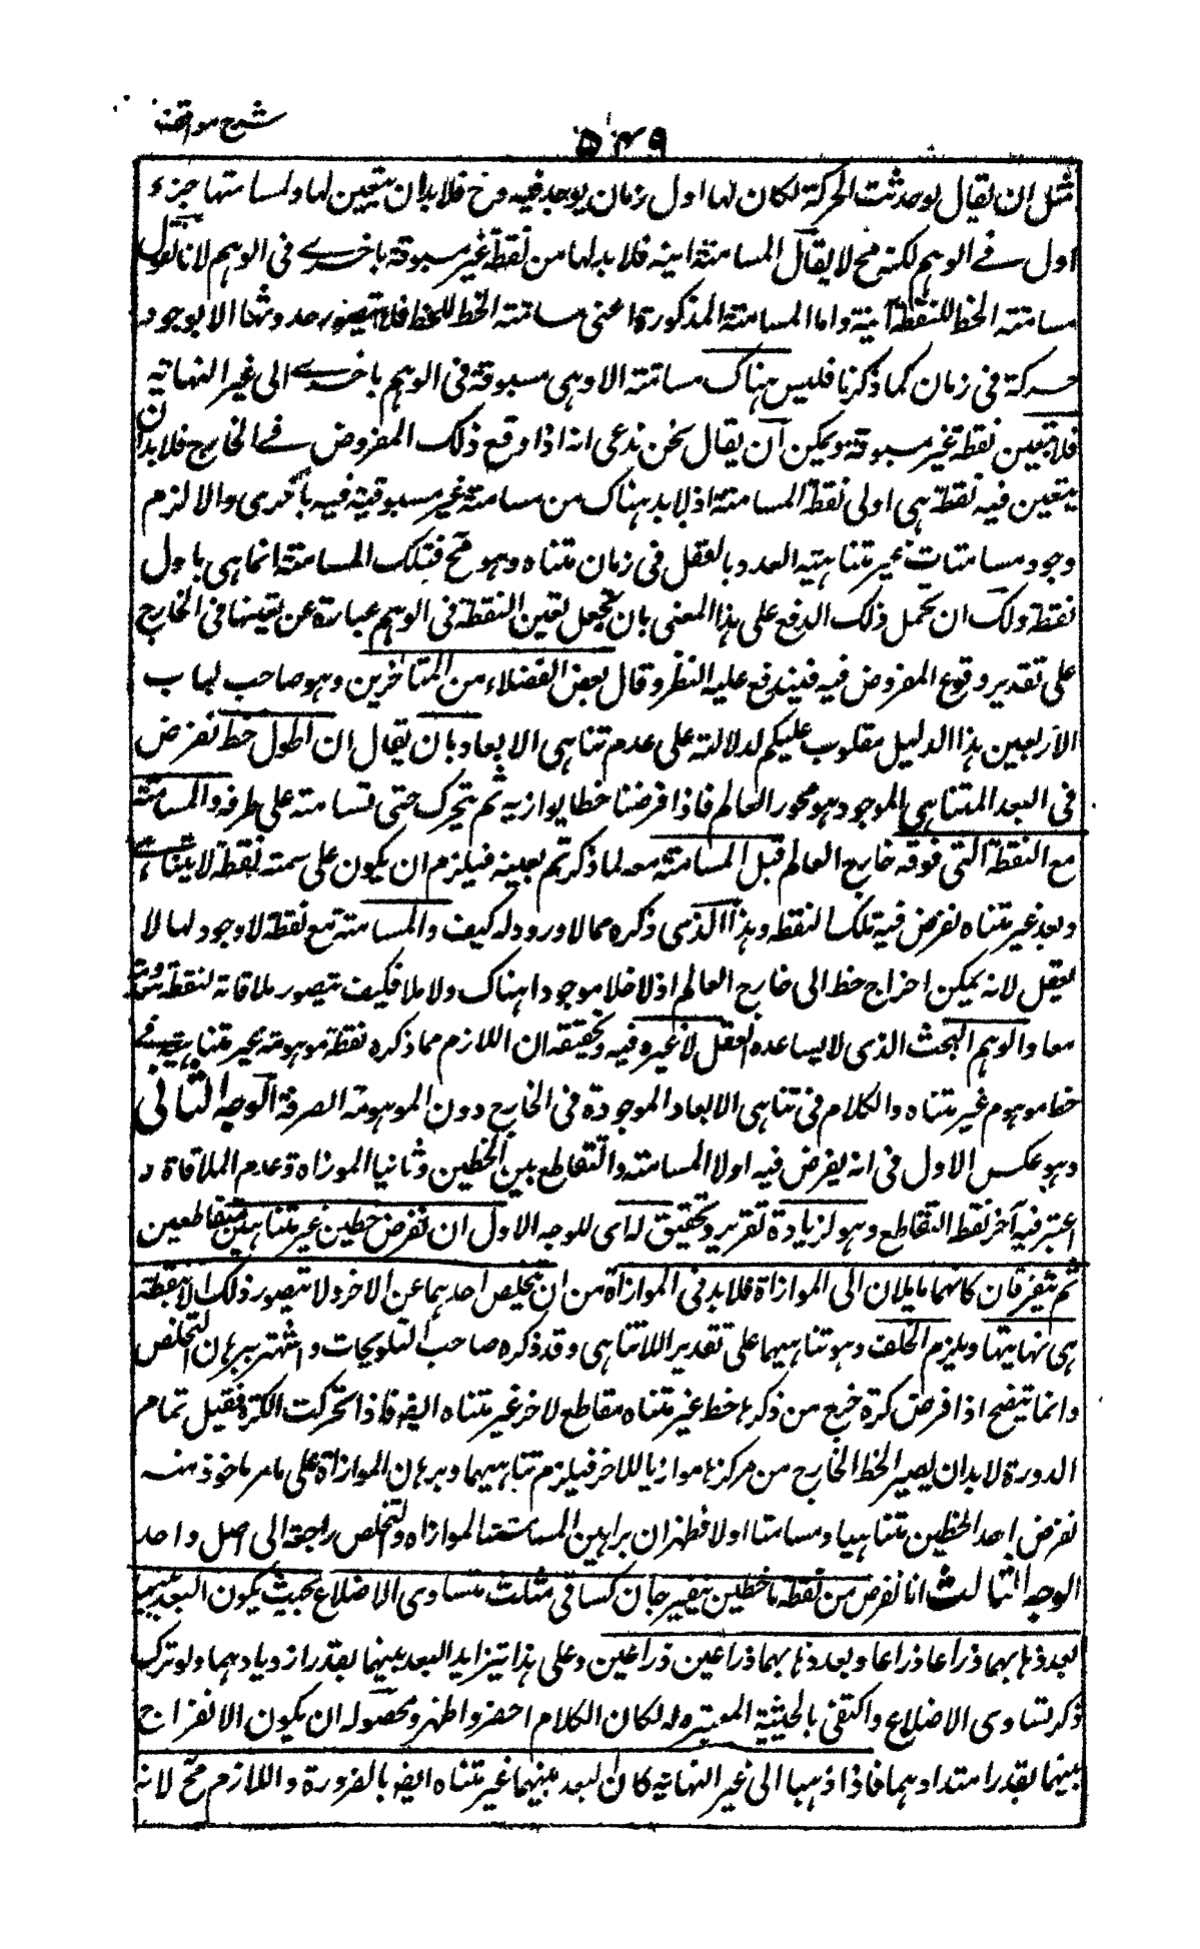 شرح مواقف
۵۴۹
مثل ان يقال لو حدثت الحركة لكان لها اول زمان يوجد فيه وح فلا بد ان يتعين لها ولمسامتتها جزء
اول في الوهم لكنه مح لا يقال المسامتة آنية فلا بد لها من نقطة غير مسبوقة باخرى في الوهم لانا نقول
مسامتة الخط للنقطة آنية واما المسامتة المذكورة اعنى مسامتة الخط للخط فلا يتصور حدوثها الا بوجود
حركة في زمان كما ذكرنا فليس هناك مسامتة الا وهى مسبوقة في الوهم باخرى الى غير النهاية
فلا يتعين نقطة غير مسبوقة ويمكن ان يقال نحن ندعى انه اذا وقع ذلك المفروض في الخارج فلا بد ان
يتعين فيه نقطة هى اولى نقط المسامتة اذ لا بد هناك من مسامتة غير مسبوقية فيه باخرى والا لزم
وجود مسامتات غير متناهية العدد بالفعل في زمان متناه وهو مح فتلك المسامتة انما هى باول
نقطة ولك ان تحمل ذلك الدفع على هذا المعنى بان تجعل تعين النقطة في الوهم عبارة عن تعينها في الخارج
على تقدير وقوع المفروض فيه فيندفع عليه النظر وقال بعض الفضلاء من المتاخرين وهو صاحب لباب
الاربعين هذا الدليل مقلوب عليكم لدلالته على عدم تناهى الابعاد بان يقال ان اطول خط نفرض
في البعد المتناهى الموجود هو محور العالم فاذا فرضنا خطا يوازيه ثم يتحرك حتى تسامته على طرفه والمسامتة
مع النقطة التى فوقه خارج العالم قبل المسامتة معه لما ذكرتم بعينه فيلزم ان يكون على سمته نقط لا يتناهى
وبعد غير متناه نفرض فيه تلك النقط وهذا الذى ذكره مما لا ورود له كيف والمسامتة مع نقطة لا وجود لها لا
يعقل لانه يمكن اخراج خط الى خارج العالم اذ لا خلا موجودا هناك ولا ملا فكيف يتصور ملاقاته لنقطة
معا والوهم البحث الذى لا يساعده العقل لا عبره فيه وتحقيقه ان اللازم مما ذكره نقط موهومة غير متناهية في
خط موهوم غير متناه والكلام في تناهى الابعاد الموجودة في الخارج دون الموهومة الصرفة الوجه الثانى
وهو عكس الاول في انه يفرض فيه اولا المسامتة والتقاطع بين الخطين وثانيا الموزاة وعدم الملاقاة و
اعتبر فيه آخر نقط التقاطع وهو لزيادة تقرير وتحقيق له اى للوجه الاول ان نفرض خطين غير متناهين متقاطعين
ثم ينفرقان كانهما مايلان الى الموازاة فلا بد في الموازاة من ان يتخلص احدهما عن الآخر ولا يتصور ذلك الا بنقطة
هى نهايتها ويلزم الخلف وهو تناهيهما على تقدير اللاتناهى وقد ذكره صاحب التلويحات واشتهر ببرهان التخلص
وانما يتضح اذا فرض كرة خرج من مركزها خط غير متناه مقاطع لآخر غير متناه ايضا فاذا تحركت الكرة فقبل تمام
الدورة لا بد ان يصير الخط الخارج من مركزها موازيا للآخر فيلزم تناهيهما وبرهان الموازاة على ما مر ماخوذ منه
نفرض احد الخطين متناهيا ومسامتا اولا فظهر ان براهين المسامتة الموازاه والتخلص راجعة الى اصل واحد
الوجه الثالث انا نفرض من نقطة ما خطين ينفرجان كساقى مثلث متساوى الاضلاع بحيث يكون البعد بينهما
بعد ذهابهما ذراعا ذراعا وبعد ذهابهما ذراعين ذراعين وعلى هذا يتزايد البعد بينهما بقدر ازديادهما ولو ترك
ذكر تساوى الاضلاع واكتفى بالحيثية المعتبره له لكان الكلام اخصر واظهر ومحصوله ان يكون الانفراج
بينهما بقدر امتدادهما فاذا ذهبا الى غير النهاية كان البعد بينهما غير متناه ايضا بالضرورة واللازم مح لانه